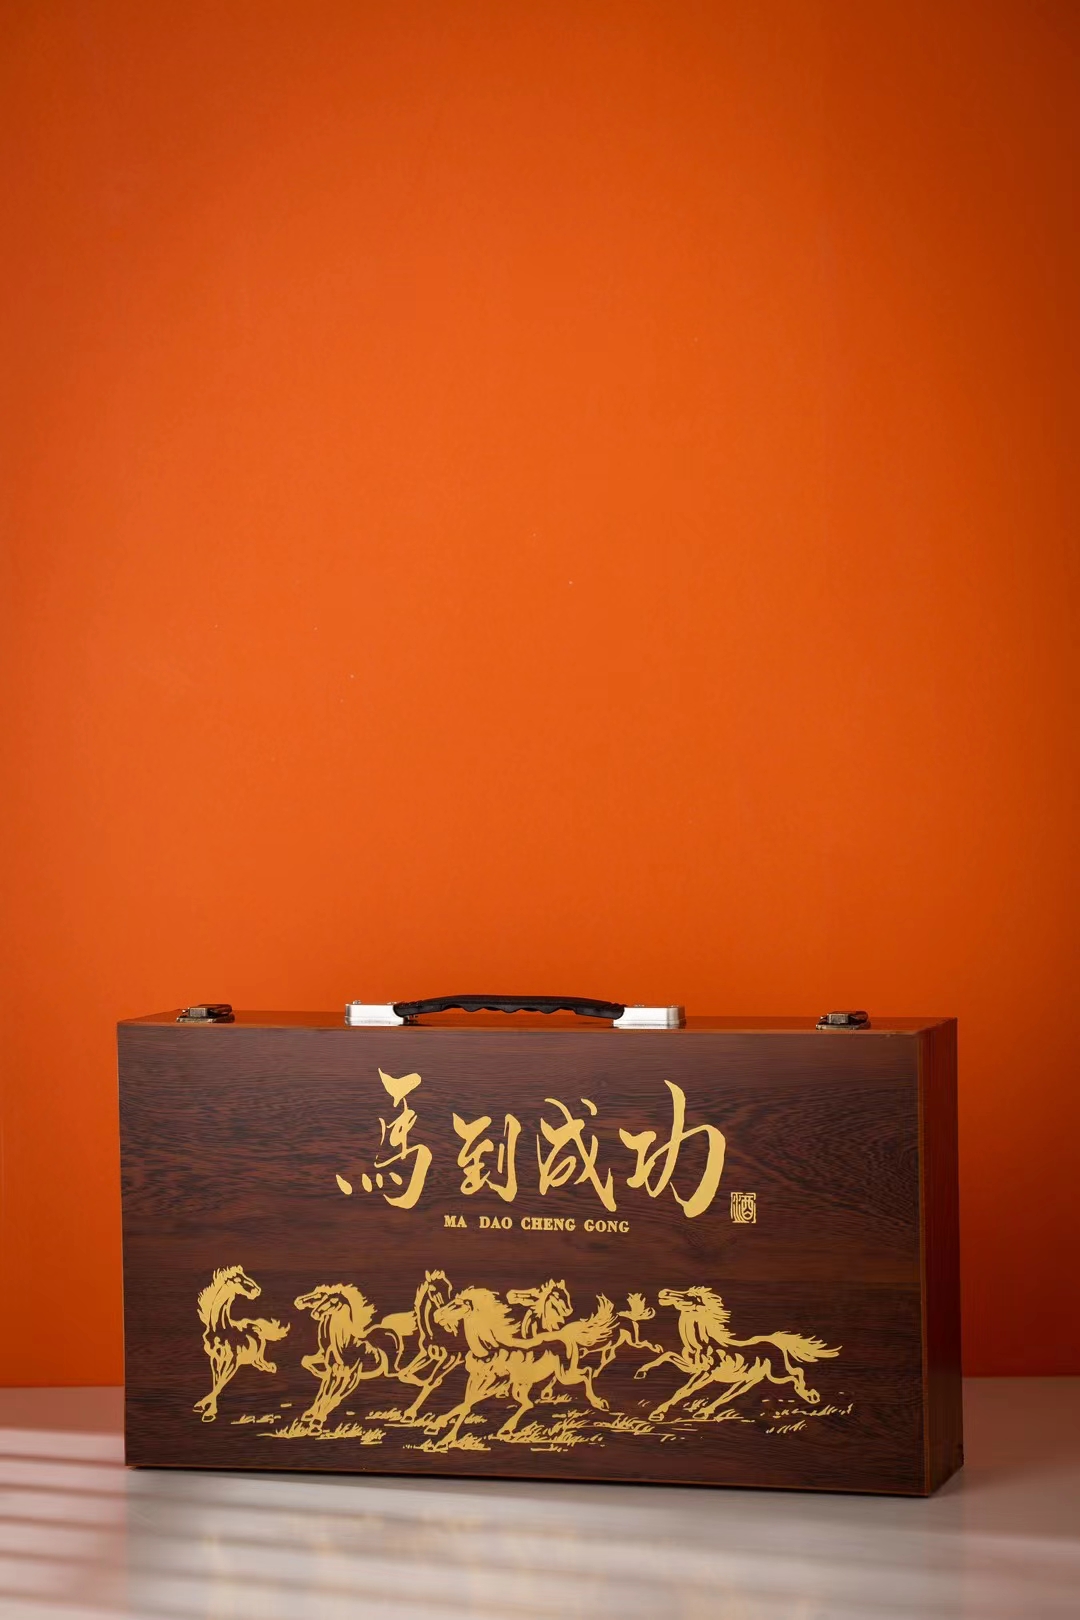 馬到成功
MA DAO CHENG GONG
酒